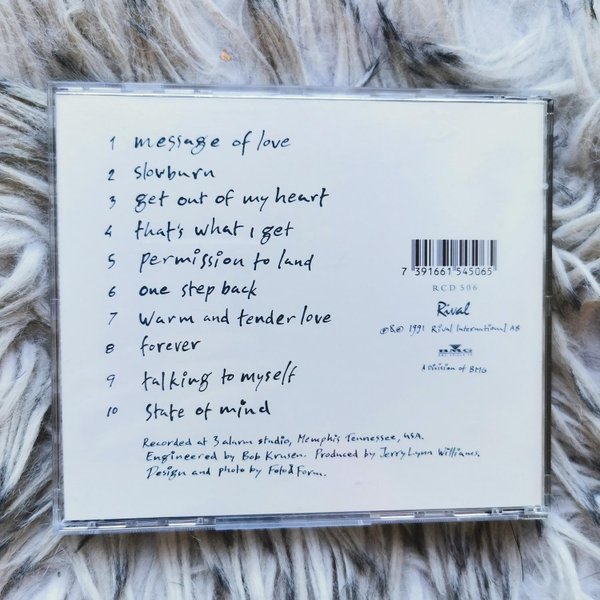 1 message of love
2 slowburn
3 get out of my heart
4 that's what i get
5 permission to land
6 one step back
7 warm and tender love
8 forever
9 talking to myself
10 state of mind
7 391661 545065
RCD 506
Rival
℗&© 1991 Rival International AB
BMG
A Division of BMG
Recorded at 3 alarm studio, Memphis Tennessee, USA.
Engineered by Bob Krusen. Produced by Jerry Lynn Williams.
Design and photo by Foto & Form.